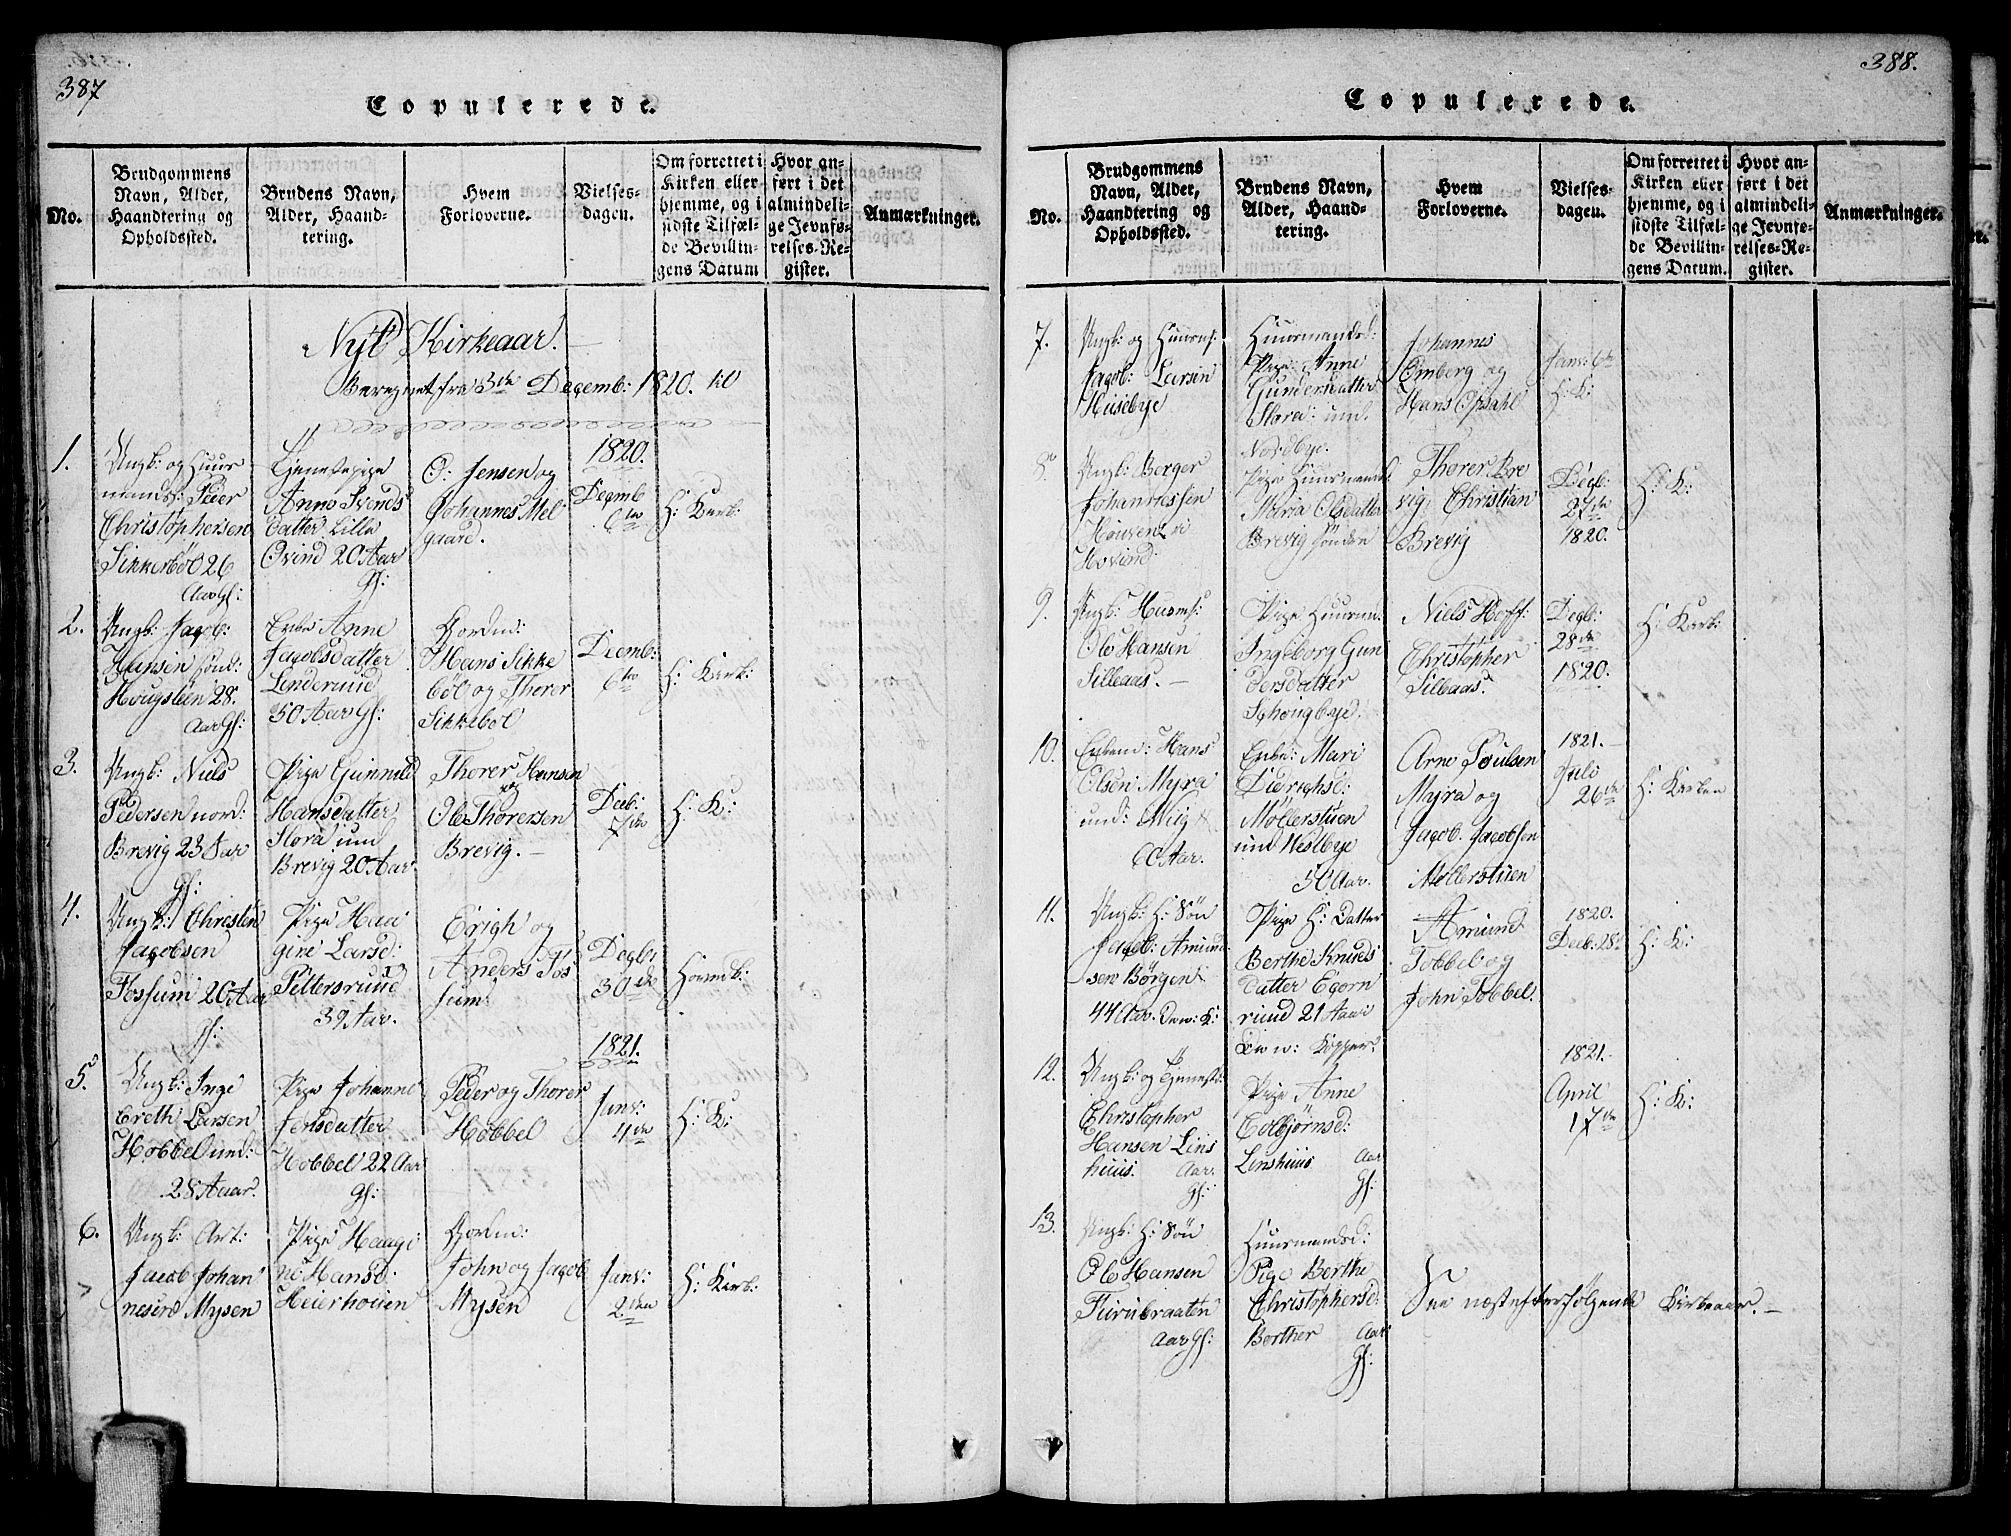 387
Copulerede.
No.
Brudgommens
Navn, Alder,
Haandtering og
Opholdssted.
Brudens Navn,
Alder, Haand-
tering.
Hvem
Forloverne.
Vielses-
dagen.
Om forrettet i
Kirken eller
hjemme, og i
sidste Tilfæl-
de Bevillin-
gens Datum
Hvor an-
ført i det
almindeli-
ge Jevnfø-
relses-Re-
gister.
Anmærkninger.
Nyt Kirkeaar.
Beregnet fra 3de Decemb: 1820.
1.
Ungk: og Huus
mands: Peder
Christophersen
Sikkerböl 26
Aar Gl:
Tjenestepige
Anne Svends
datter Lille
Ovind 20 Aar
Gl:
O: Jensen og
Johannes Mel
gaard.
1820.
Decemb
6te
H: Kirk:
2.
Ungk: Jacob
Hansen sönd:
Hougsteen 28.
Aar Gl:
Enke Anne
Jacobsdatter
Linderuud
50 Aar Gl:
Gordm:
Hans Sikke
böl og Thorer
Sikkeböl
Decemb:
6te
H: Kirk:
3.
Ungk: Niels
Pedersen nord:
Brevig 23 Aar
Gl:
Pige Gunnild
Hansdatter
Slora und
Brevig 20 Aar.
Thorer Hansen
og
Ole Thorersen
Brevig.
Decb:
7de
H: K:
4.
Ungk: Christen
Jacobsen
Fossum 20 Aar
Gl:
Pige Hau
gine Larsd:
Pettersruud
39 Aar.
Erich og
Anders Fos
sum
Decb:
30de
Hovedk:
5.
Ungk: Inge
breth Larsen
Hobbel und:
28 Aar.
Pige Johanne
Jensdatter
Hobbel 22 Aar
Gl:
Peder og Thorer
Hobbel
1821.
Janv:
4de
H: K:
6.
Ungk: Art:
Jacob Johan
nesen Mysen
Pige Haagi
ne Hansd:
Heierhouen
Gordm:
John og Jacob
Mysen
Janv:
2den
H: Kirk:
388.
Copulerede.
No.
Brudgommens
Navn, Alder,
Haandtering og
Opholdssted.
Brudens Navn,
Alder, Haand-
tering.
Hvem
Forloverne.
Vielses-
dagen.
Om forrettet i
Kirken eller
hjemme, og i
sidste Tilfæl-
de Bevillin-
gens Datum.
Hvor an-
ført i det
almindeli-
ge Jevnfø-
relses-Re-
gister.
Anmærkninger.
7.
Ungk: og Huusms:
Jacob: Larsen
Husebye
Huusmandsd:
Pige Anne
Gundersdatter
Slora: und.
Nordbye.
Johannes
Omberg og
Hans Opsahl
Janv: 6te
H: K:
8.
Ungk: Berger
Johannessen
Hovind
Pige Huusmands
Maria Olsdatter
Brevig sönden
Thorer Bre
vig, Christian
Brevig
Decb:
27de
1820.
H: K:
9.
Ungk: Huusms:
Ole Hansen
Silleaas.
Pige Huusm:
Ingeborg Gun
dersdatter
Schougbye.
Niels Hoff:
Christopher
Silleaas.
Decb:
28de
1820.
H: Kirk:
10.
Enkem: Hans
Olsen Myra
und:
60 Aar.
Enke: Mari
Diderichsd:
Möllerstuen
und Westbye
50 Aar.
Arne Poulsen
Myra og
Jacob. Jacobsen
Möllerstuen
1821.
Juli
26de
H: Kirken
11.
Ungk: H: Sön
Jacob: Amund
sen Börgen
44 Aar.
Pige H: Datter
Berthe Knuds
datter Egorn
ruud 21 Aar
Amund
Tobbel og
John Tobbel.
1820.
Decb: 28de
H: K:
12.
Ungk: og Tjenestd:
Christopher
Hansen Lins
huus. Aar
Gl:
Pige Anne
Edbjörnsd:
Lenshuus Aar
Gl:
1821.
April
17de
H: K:
13.
Ungk: H: Sön
Ole Hansen
Furubraaten
Aar Gl:
Huusmandsd:
Pige Berthe
Christophersd:
Berther Aar
Gl:
See næstefterfölgende Kirkeaar.